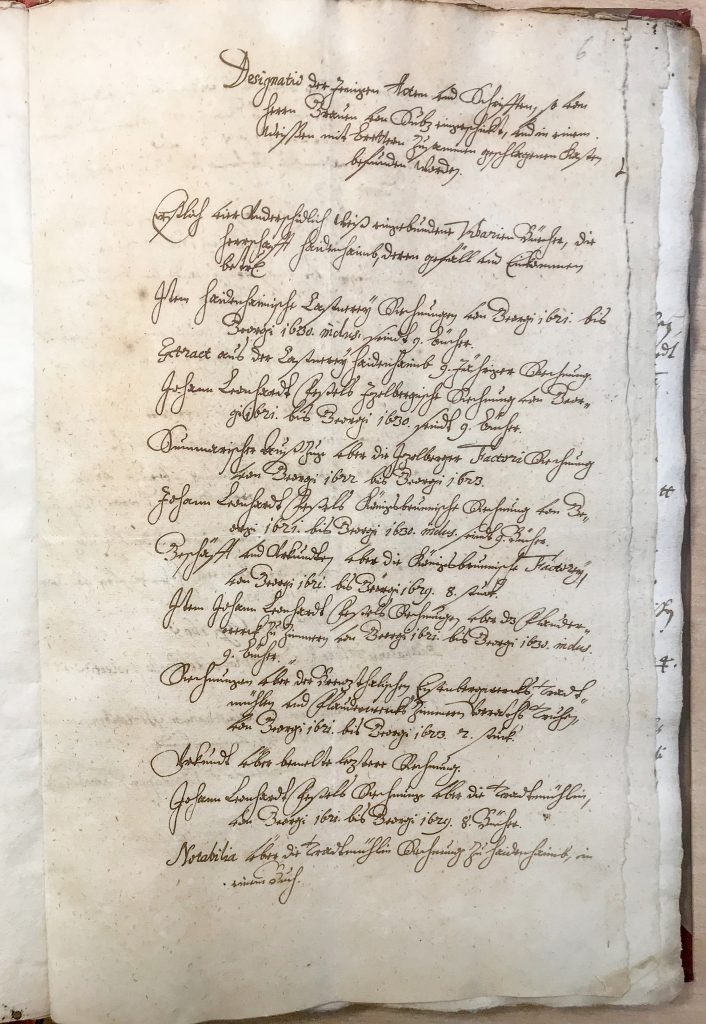 6
Designatio der Jenigen Acten und Schrifften, so von
Herrn Brauen von Sultz eingeschickt, und in einem
Weissen mit brettern zusamen geschlagenen Kasten
befunden worden.
Erstlich vier Underschidlich weiß eingebundene Bücher, die
Herrschafft Haidenhaimb, deren gefäll und Einkommen
betrl.
Item Haidenhaimische Castnerey Rechnungen von Georgi 1621. bis
Georgi 1630. inclus. seindt 9. bücher.
Extract aus der Castnerey Haidenhaimb 9. Jähriger Rechnung.
Johann Leonhardt Itzelbergische Rechnung von Geor-
gi 1621. bis Georgi 1630. seindt 9. bücher.
Summarischer Außzug über die Itzelberger Factori Rechnung
von Georgi 1622. bis Georgi 1623.
Johann Leonhardt Königsbrunnische Rechnung von Ge-
orgi 1621. bis Georgi 1630. inclus. seindt 9. Bücher.
und Urkunden über die Königsbrunnische Factorey,
von Georgi 1621. bis Georgi 1629. 8. stuck.
Item Johann Leonhardt Rechnungen über dz
werck zu Zimmern von Georgi 1621. bis Georgi 1630. inclus.
9. bücher.
Rechnungen über der Brenzthalischen Eysenbergwercks
mühlen und Zimmern
von Georgi 1621. bis Georgi 1623. 2. stuck.
Urkundt über bemelte letztere Rechnung.
Johann Leonhardt Rechnung über die
von Georgi 1621. bis Georgi 1629. 8. Bücher.
Notabilia über die Rechnung zu Haidenhaimb, in
einem Buch.